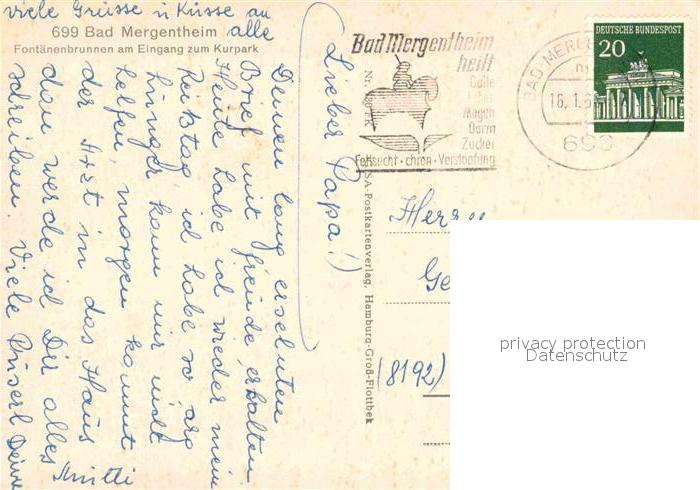 viele Grüsse u Küsse an
alle
699 Bad Mergentheim
Fontänenbrunnen am Eingang zum Kurpark
Lieber Papa!
Deinen lang ersehnten
Brief mit Freude erhalten
Heute habe ich wieder mein
Fasttag, ich habe so arg
Hunger kann mir nicht
helfen morgen kommt
der Arzt in das Haus
dan werde ich Dir alles
schreiben. Viele Büserl Deine
Mutti
SA-Postkartenverlag, Hamburg-Groß-Flottbek
Nr.
Bad Mergentheim
heilt
Galle
Magen
Darm
Zucker
Fettsucht · chron · Verstopfung
BAD MERG
16.1.
699
DEUTSCHE BUNDESPOST
20
Herrn
Ge
(8192)
privacy protection
Datenschutz